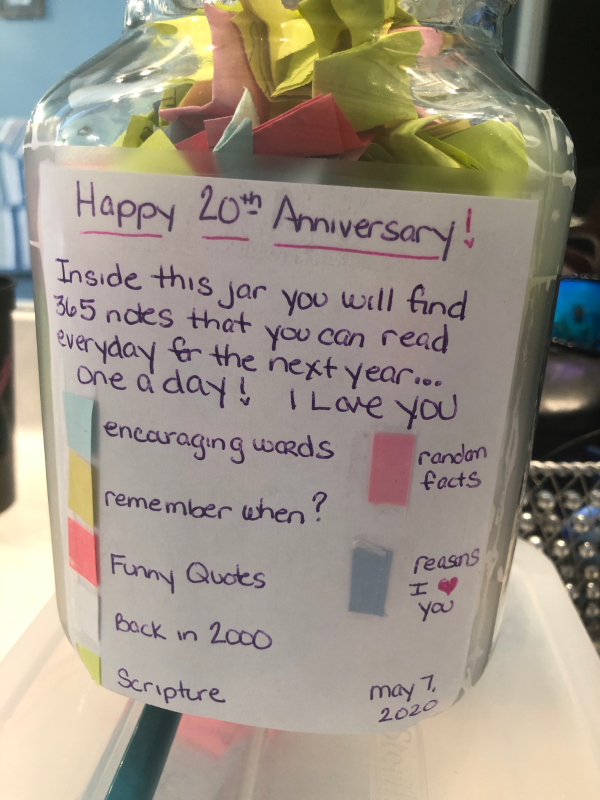 Happy 20th Anniversary!
Inside this jar you will find
365 notes that you can read
everyday for the next year...
one a day! I Love you
encouraging words
random
facts
remember when?
Funny Quotes
reasons
I ❤
you
Back in 2000
Scripture
may 7,
2020